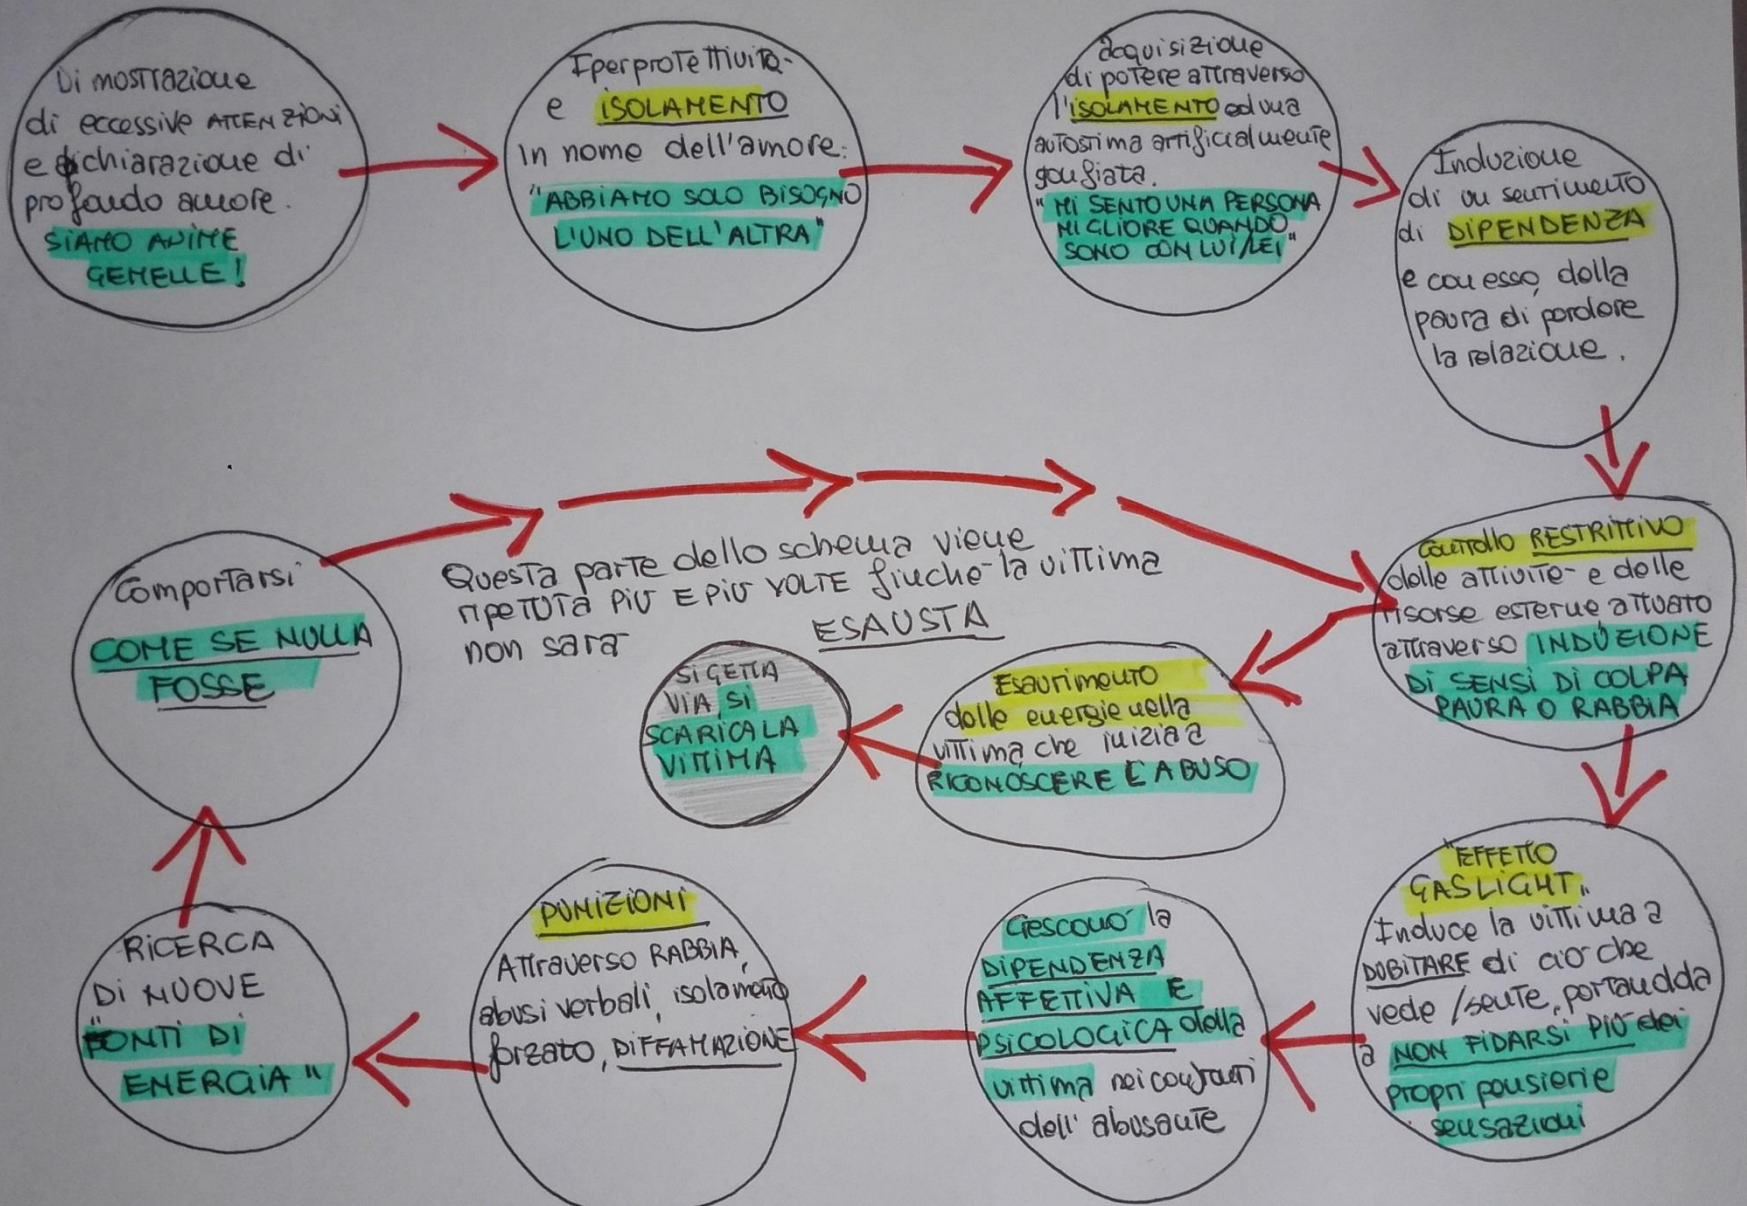 Dimostrazione
di eccessive ATTENZIONI
e dichiarazione di
profondo amore.
SIAMO ANIME
GEMELLE!
Iperprotettività
e ISOLAMENTO
in nome dell'amore:
"ABBIAMO SOLO BISOGNO
L'UNO DELL'ALTRA"
acquisizione
di potere attraverso
l'ISOLAMENTO ed una
autostima artificialmente
gonfiata.
"MI SENTO UNA PERSONA
MIGLIORE QUANDO
SONO CON LUI/LEI"
Induzione
di un sentimento
di DIPENDENZA
e con esso, della
paura di perdere
la relazione.
Controllo RESTRITTIVO
delle attività e delle
risorse esterne attuato
attraverso INDUZIONE
DI SENSI DI COLPA
PAURA O RABBIA
"EFFETTO
GASLIGHT"
Induce la vittima a
DUBITARE di ciò che
vede/sente, portandola
a NON FIDARSI PIÙ dei
propri pensieri e
sensazioni
Crescono la
DIPENDENZA
AFFETTIVA E
PSICOLOGICA della
vittima nei confronti
dell'abusante
PUNIZIONI
Attraverso RABBIA,
abusi verbali, isolamento
forzato, DIFFAMAZIONE
RICERCA
DI NUOVE
"FONTI DI
ENERGIA"
Comportarsi
COME SE NULLA
FOSSE
Questa parte dello schema viene
ripetuta PIÙ E PIÙ VOLTE finché la vittima
non sarà ESAUSTA
Esaurimento
delle energie nella
vittima che inizia a
RICONOSCERE L'ABUSO
SI GETTA
VIA, SI
SCARICA LA
VITTIMA